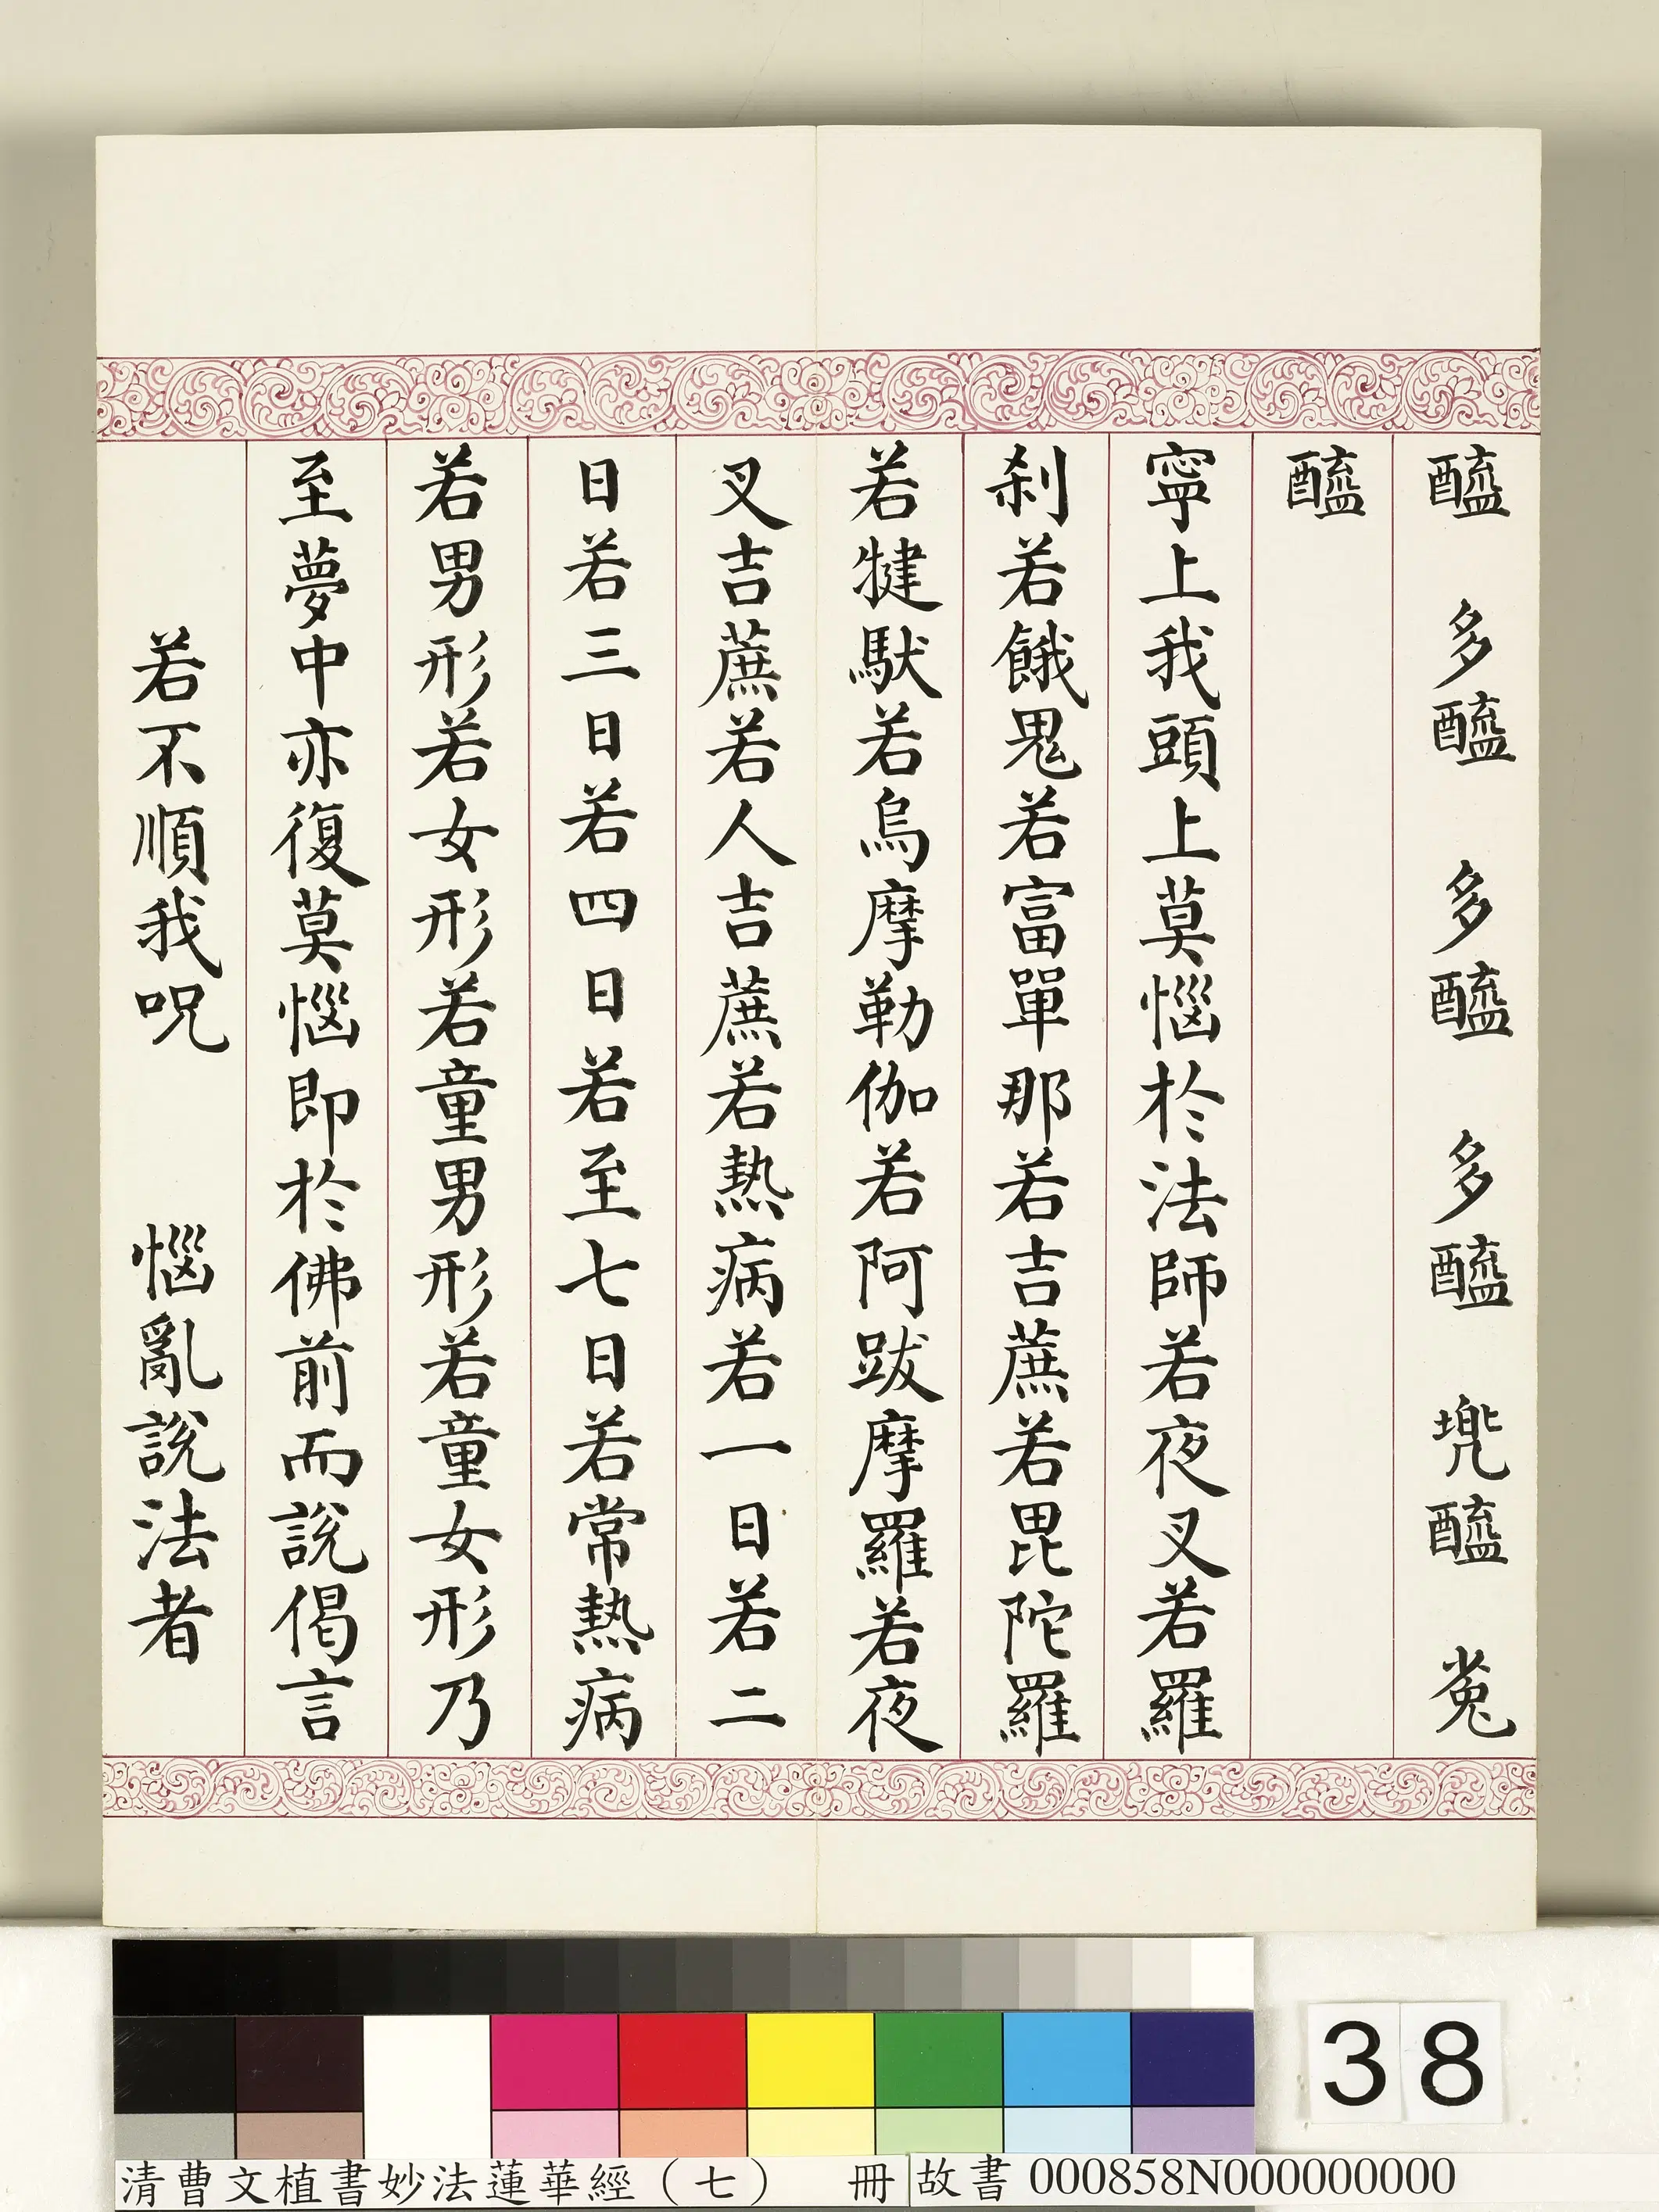 醯　多醯　多醯　多醯　兠醯　㝹
醯
寧上我頭上莫惱於法師若夜叉若羅
刹若餓鬼若富單那若吉蔗若毘陀羅
若犍馱若烏摩勒伽若阿跋摩羅若夜
叉吉蔗若人吉蔗若熱病若一日若二
日若三日若四日若至七日若常熱病
若男形若女形若童男形若童女形乃
至夢中亦復莫惱即於佛前而說偈言
若不順我呪　惱亂說法者
38
清曹文植書妙法蓮華經（七）　冊　故書 000858N000000000